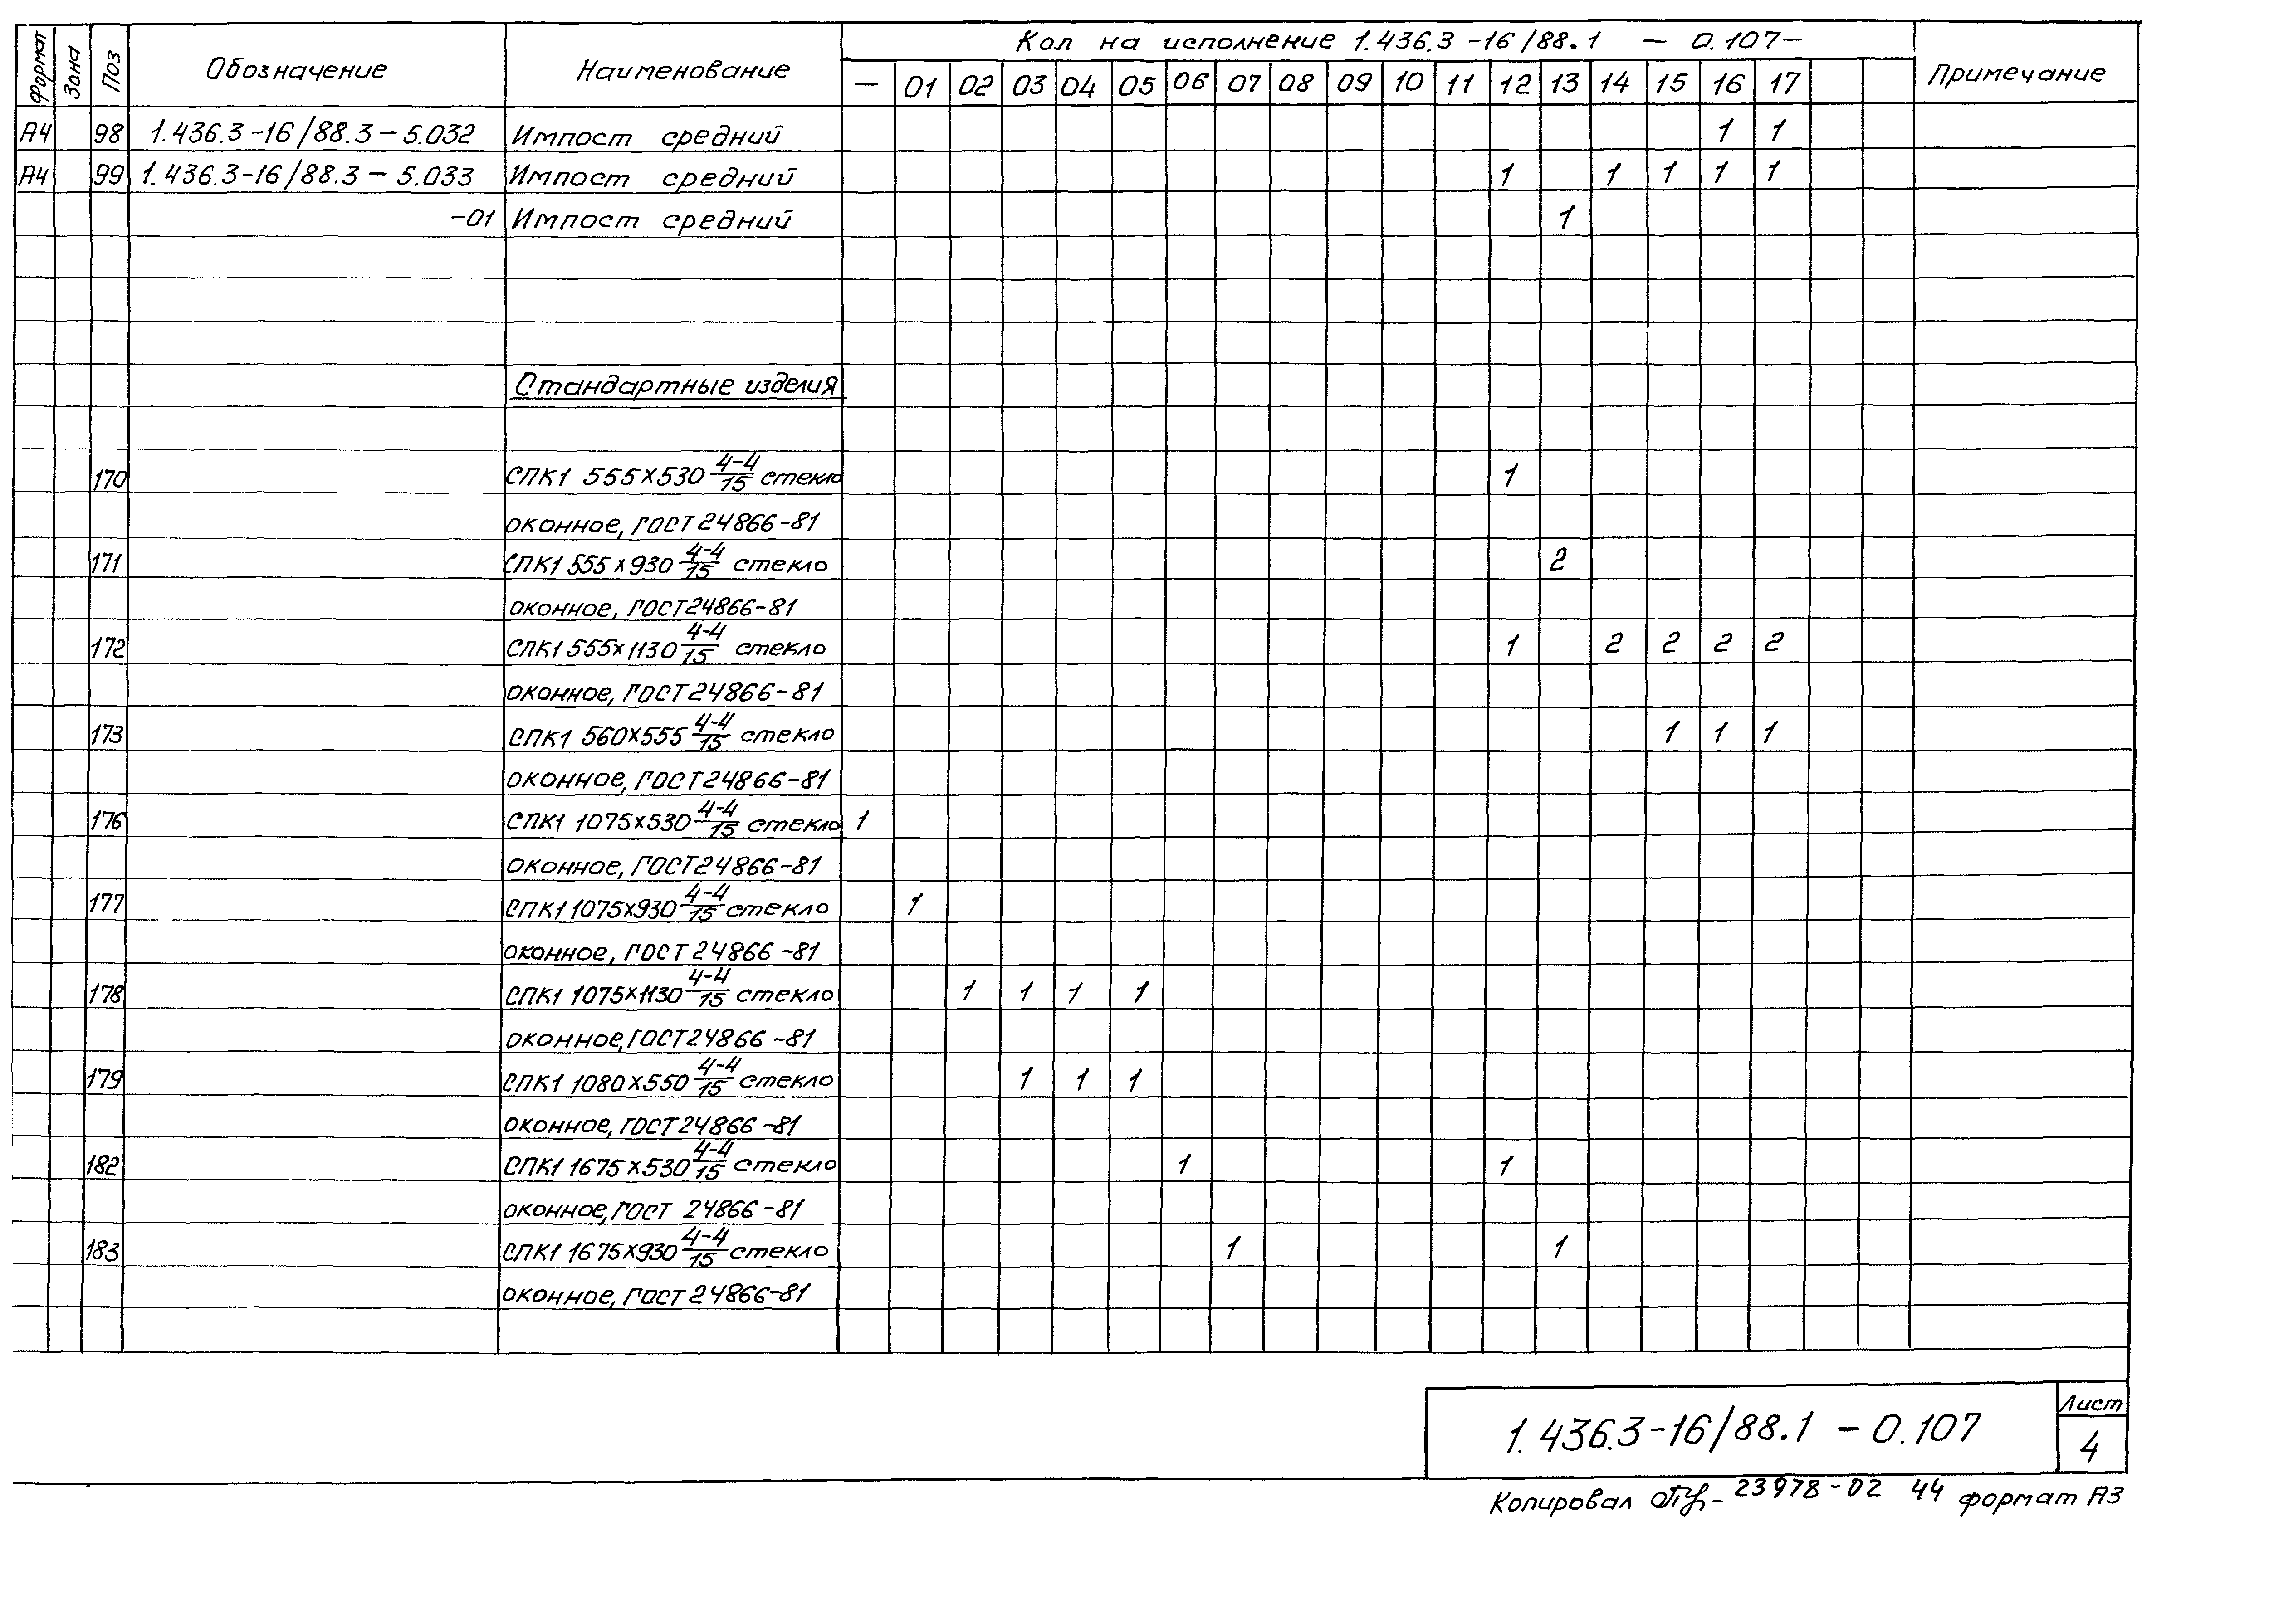 Формат Зона Поз Обозначение Наименование Кол на исполнение 1.436.3-16/88.1 — 0.107— Примечание
— 01 02 03 04 05 06 07 08 09 10 11 12 13 14 15 16 17
А4 98 1.436.3-16/88.3-5.032 Импост средний 1 1
А4 99 1.436.3-16/88.3-5.033 Импост средний 1 1 1 1 1
-01 Импост средний 1
Стандартные изделия
170 СПК1 555х530 4-4/15 стекло 1
оконное, ГОСТ 24866-81
171 СПК1 555х930 4-4/15 стекло 2
оконное, ГОСТ 24866-81
172 СПК1 555х1130 4-4/15 стекло 1 2 2 2 2
оконное, ГОСТ 24866-81
173 СПК1 560х555 4-4/15 стекло 1 1 1
оконное, ГОСТ 24866-81
176 СПК1 1075х530 4-4/15 стекло 1
оконное, ГОСТ 24866-81
177 СПК1 1075х930 4-4/15 стекло 1
оконное, ГОСТ 24866-81
178 СПК1 1075х1130 4-4/15 стекло 1 1 1 1
оконное, ГОСТ 24866-81
179 СПК1 1080х550 4-4/15 стекло 1 1 1
оконное, ГОСТ 24866-81
182 СПК1 1675х530 4-4/15 стекло 1 1
оконное, ГОСТ 24866-81
183 СПК1 1675х930 4-4/15 стекло 1 1
оконное, ГОСТ 24866-81
1.436.3-16/88.1 - 0.107
Лист
4
Копировал 23978-02 44 формат А3